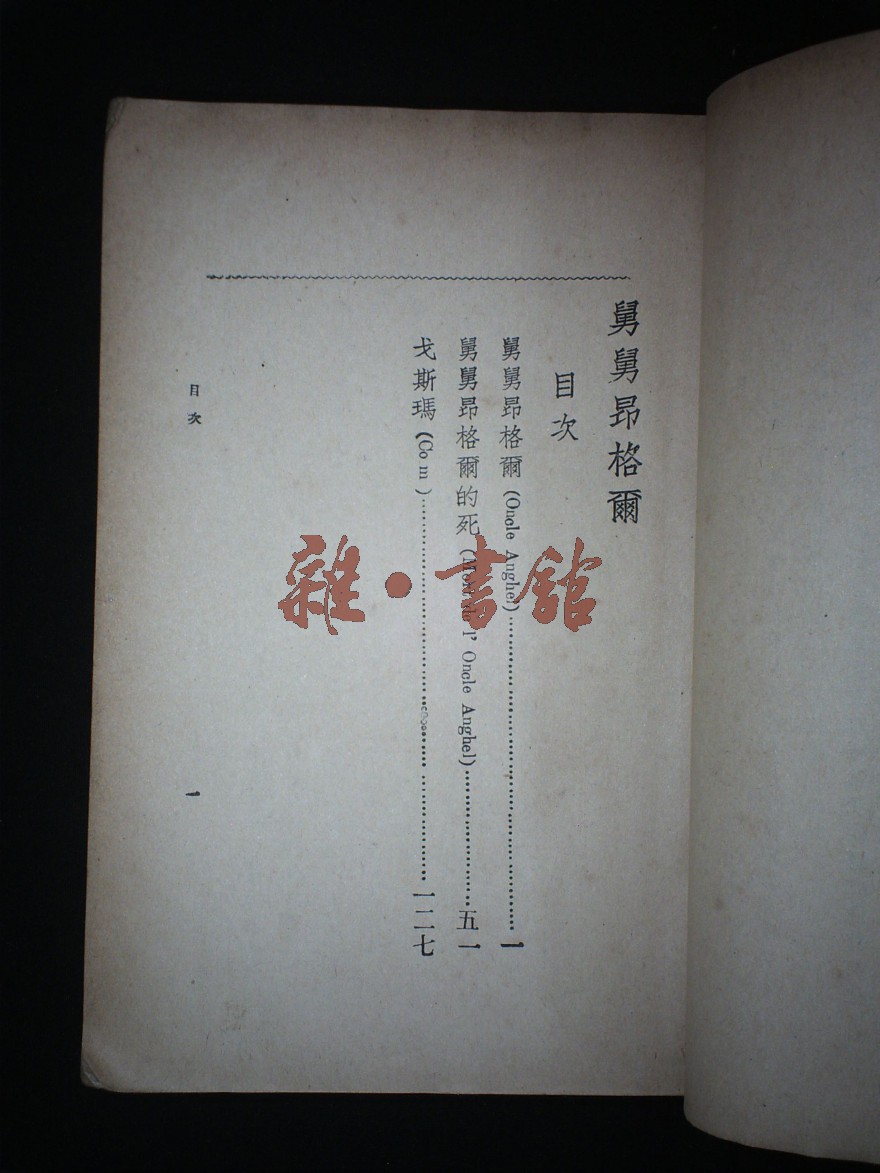 舅舅昂格爾
目次
舅舅昂格爾 (Oncle Anghel)⋯⋯⋯⋯⋯⋯⋯⋯⋯⋯一
舅舅昂格爾的死 l' Oncle Anghel)⋯⋯⋯⋯五一
戈斯瑪 (Co m )⋯⋯⋯⋯⋯⋯⋯⋯⋯⋯⋯⋯一二七
目次
一
雜·書館